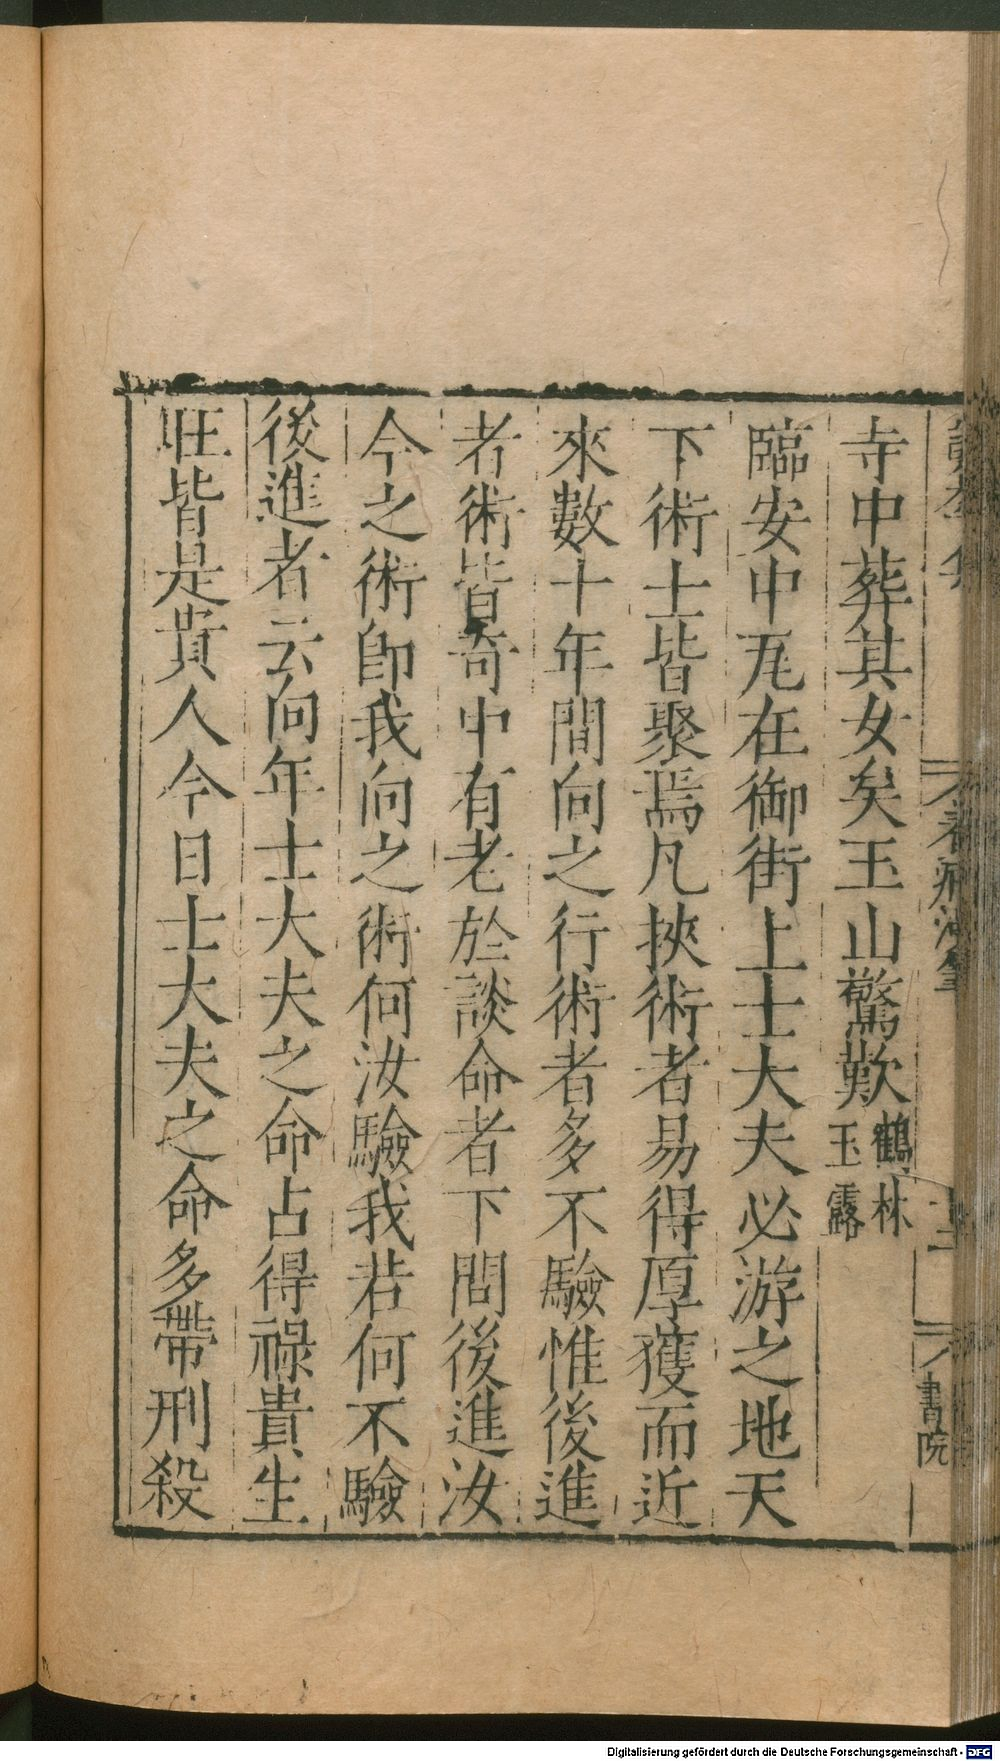 寺中葬其女矣玉山驚歎鶴林
玉露
臨安中瓦在御街上士大夫必游之地天
下術士皆聚焉凡挾術者易得厚獲而近
來數十年間向之行術者多不驗惟後進
者術皆奇中有老於談命者下問後進汝
今之術即我向之術何汝驗我若何不驗
後進者云向年士大夫之命占得祿貴生
旺皆是貴人今日士大夫之命多帶刑殺
書院
Digitalisierung gefördert durch die Deutsche Forschungsgemeinschaft - DFG